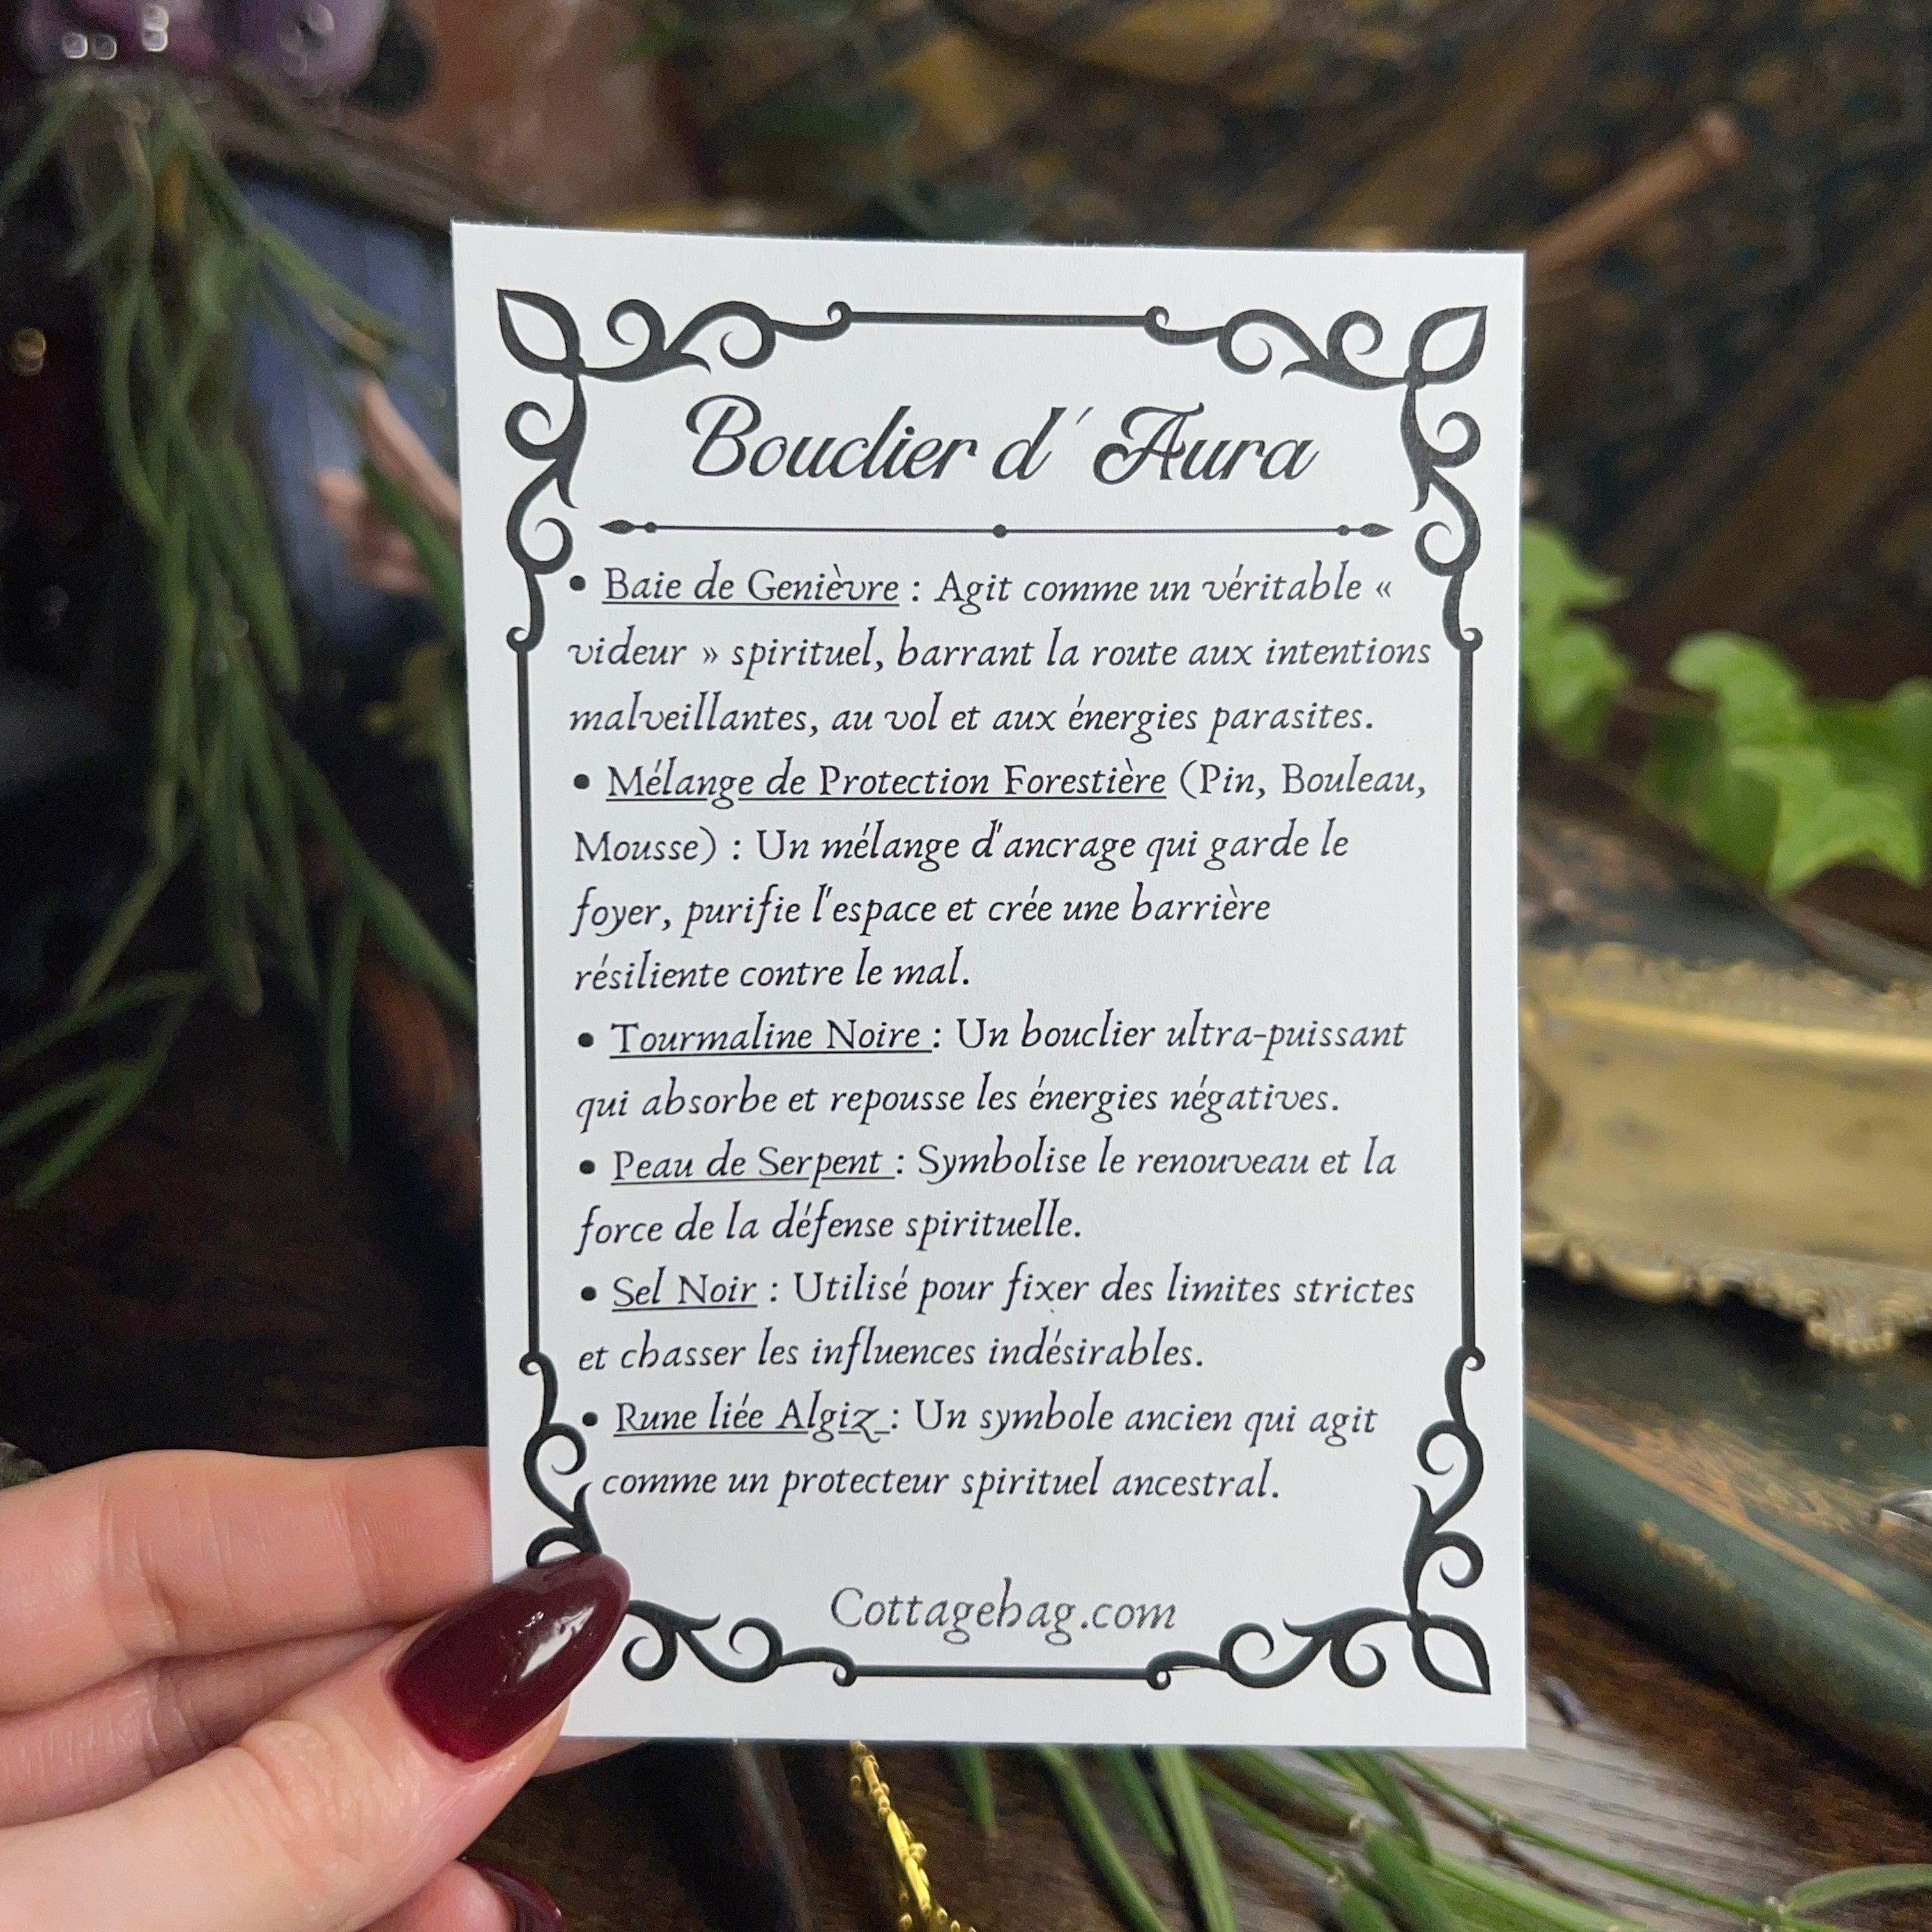 Bouclier d´Aura
• Baie de Genièvre : Agit comme un véritable «
videur » spirituel, barrant la route aux intentions
malveillantes, au vol et aux énergies parasites.
• Mélange de Protection Forestière (Pin, Bouleau,
Mousse) : Un mélange d'ancrage qui garde le
foyer, purifie l'espace et crée une barrière
résiliente contre le mal.
• Tourmaline Noire : Un bouclier ultra-puissant
qui absorbe et repousse les énergies négatives.
• Peau de Serpent : Symbolise le renouveau et la
force de la défense spirituelle.
• Sel Noir : Utilisé pour fixer des limites strictes
et chasser les influences indésirables.
• Rune liée Algiz : Un symbole ancien qui agit
comme un protecteur spirituel ancestral.
Cottagehag.com